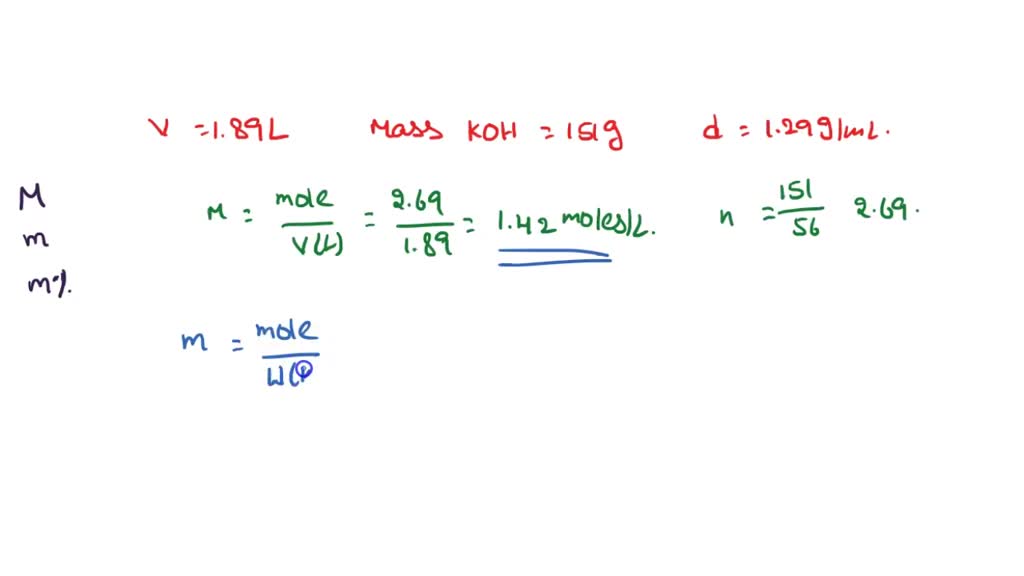 V =1.89L Mass KOH = 151g d = 1.29g/mL.
M
m
m%.
M = mole/V(L) = 2.69/1.89 = 1.42 moles/L.
n = 151/56 2.69.
m = mole/W(